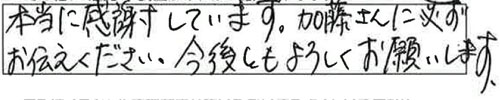 本当に感謝しています。加藤さんに必ず
お伝えください。今後ともよろしくお願いします。